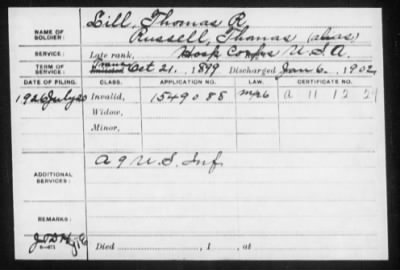 NAME OF SOLDIER: Gill, Thomas R
Russell, Thomas (alias)
SERVICE: Late rank, Hosp Corps U.S.A.
TERM OF SERVICE: Oct 21, 1899 Discharged Jan 6, 1902
DATE OF FILING. CLASS. APPLICATION NO. LAW. CERTIFICATE NO.
1926 July 20 Invalid, 1549088 A 11 12 29
Widow,
Minor,
ADDITIONAL SERVICES: A 9 U.S. Inf
REMARKS:
Died , 1 , at